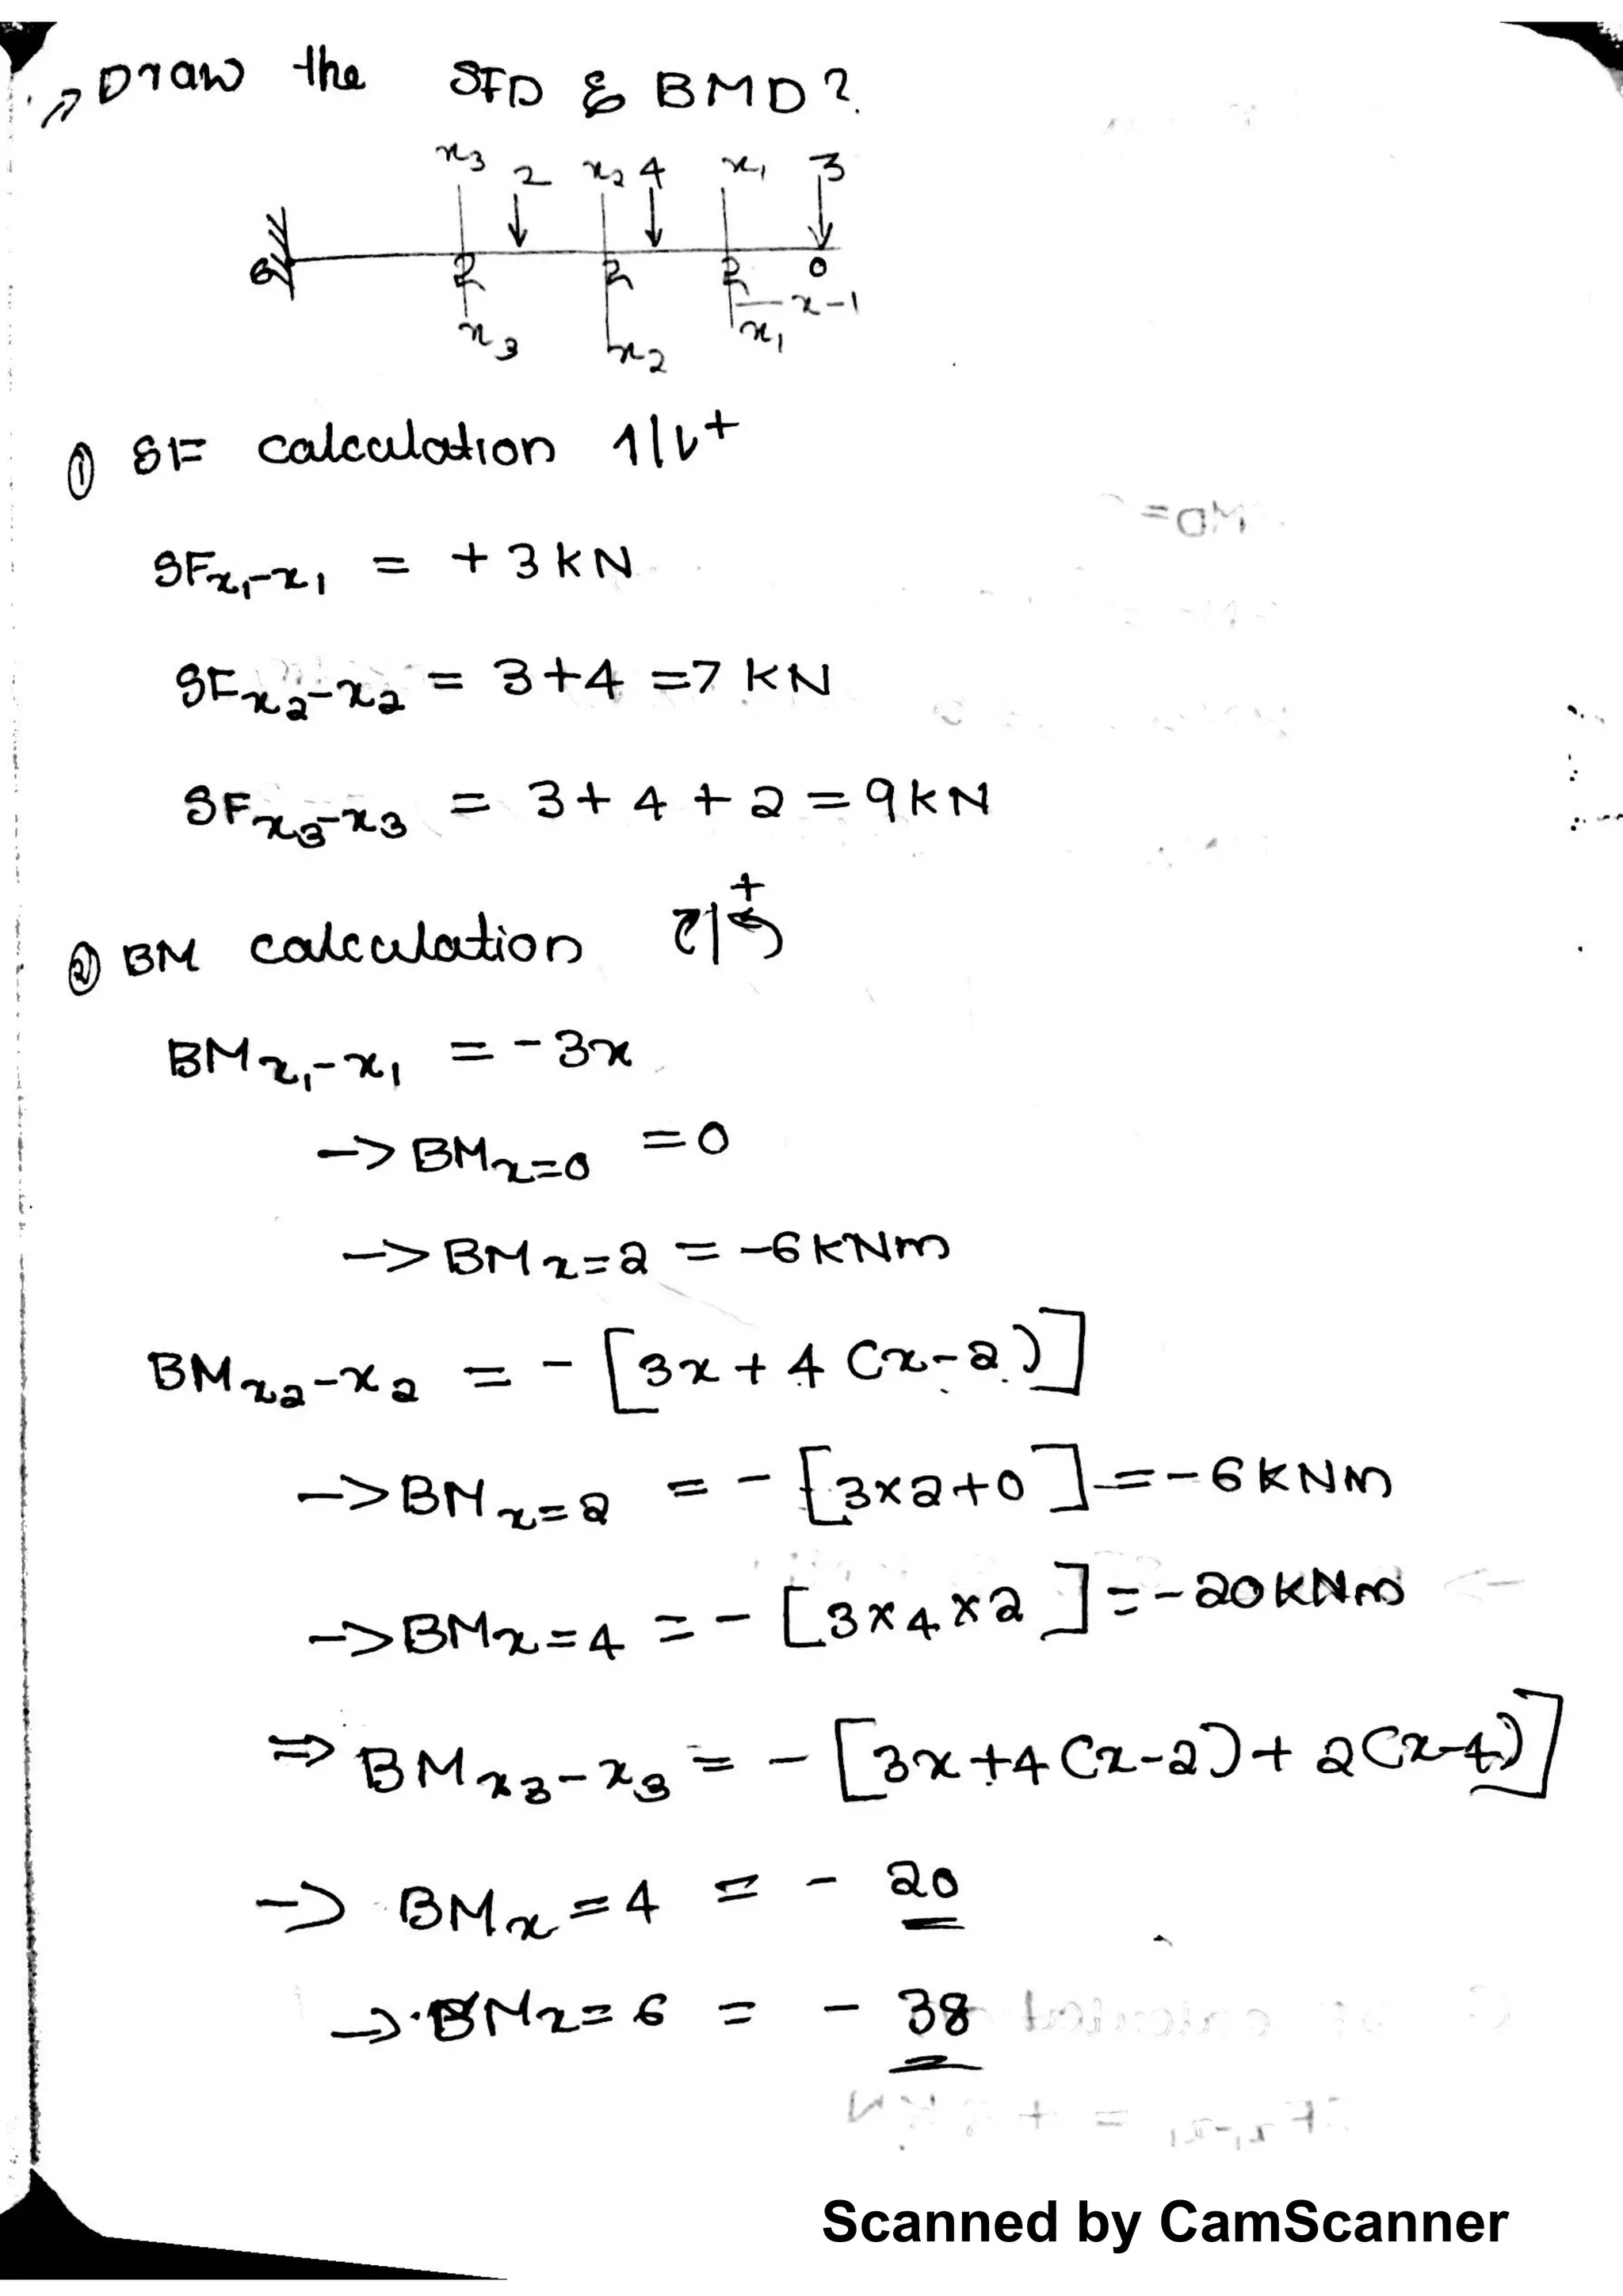 Draw the SFD & BMD?
x3 2 x2 4 x1 3
6 2 2 2 0
x-1
x3 x2 x1
① SF calculation 1|↓+
SFx1-x1 = +3kN
SFx2-x2 = 3+4 =7 KN
SFx3-x3 = 3+4+2=9KN
② BM calculation +
BMx1-x1 = -3x
-> BMx=0 =0
-> BMx=2 = -6KNm
BMx2-x2 = - [3x+4(x-2)]
-> BMx=2 = - [3x2+0] = -6KNm
-> BMx=4 = - [3x4x2] = -20KNm
=> BMx3-x3 = - [3x+4(x-2)+2(x-4)]
-> BMx=4 = - 20
-> BMx=6 = - 38
Scanned by CamScanner